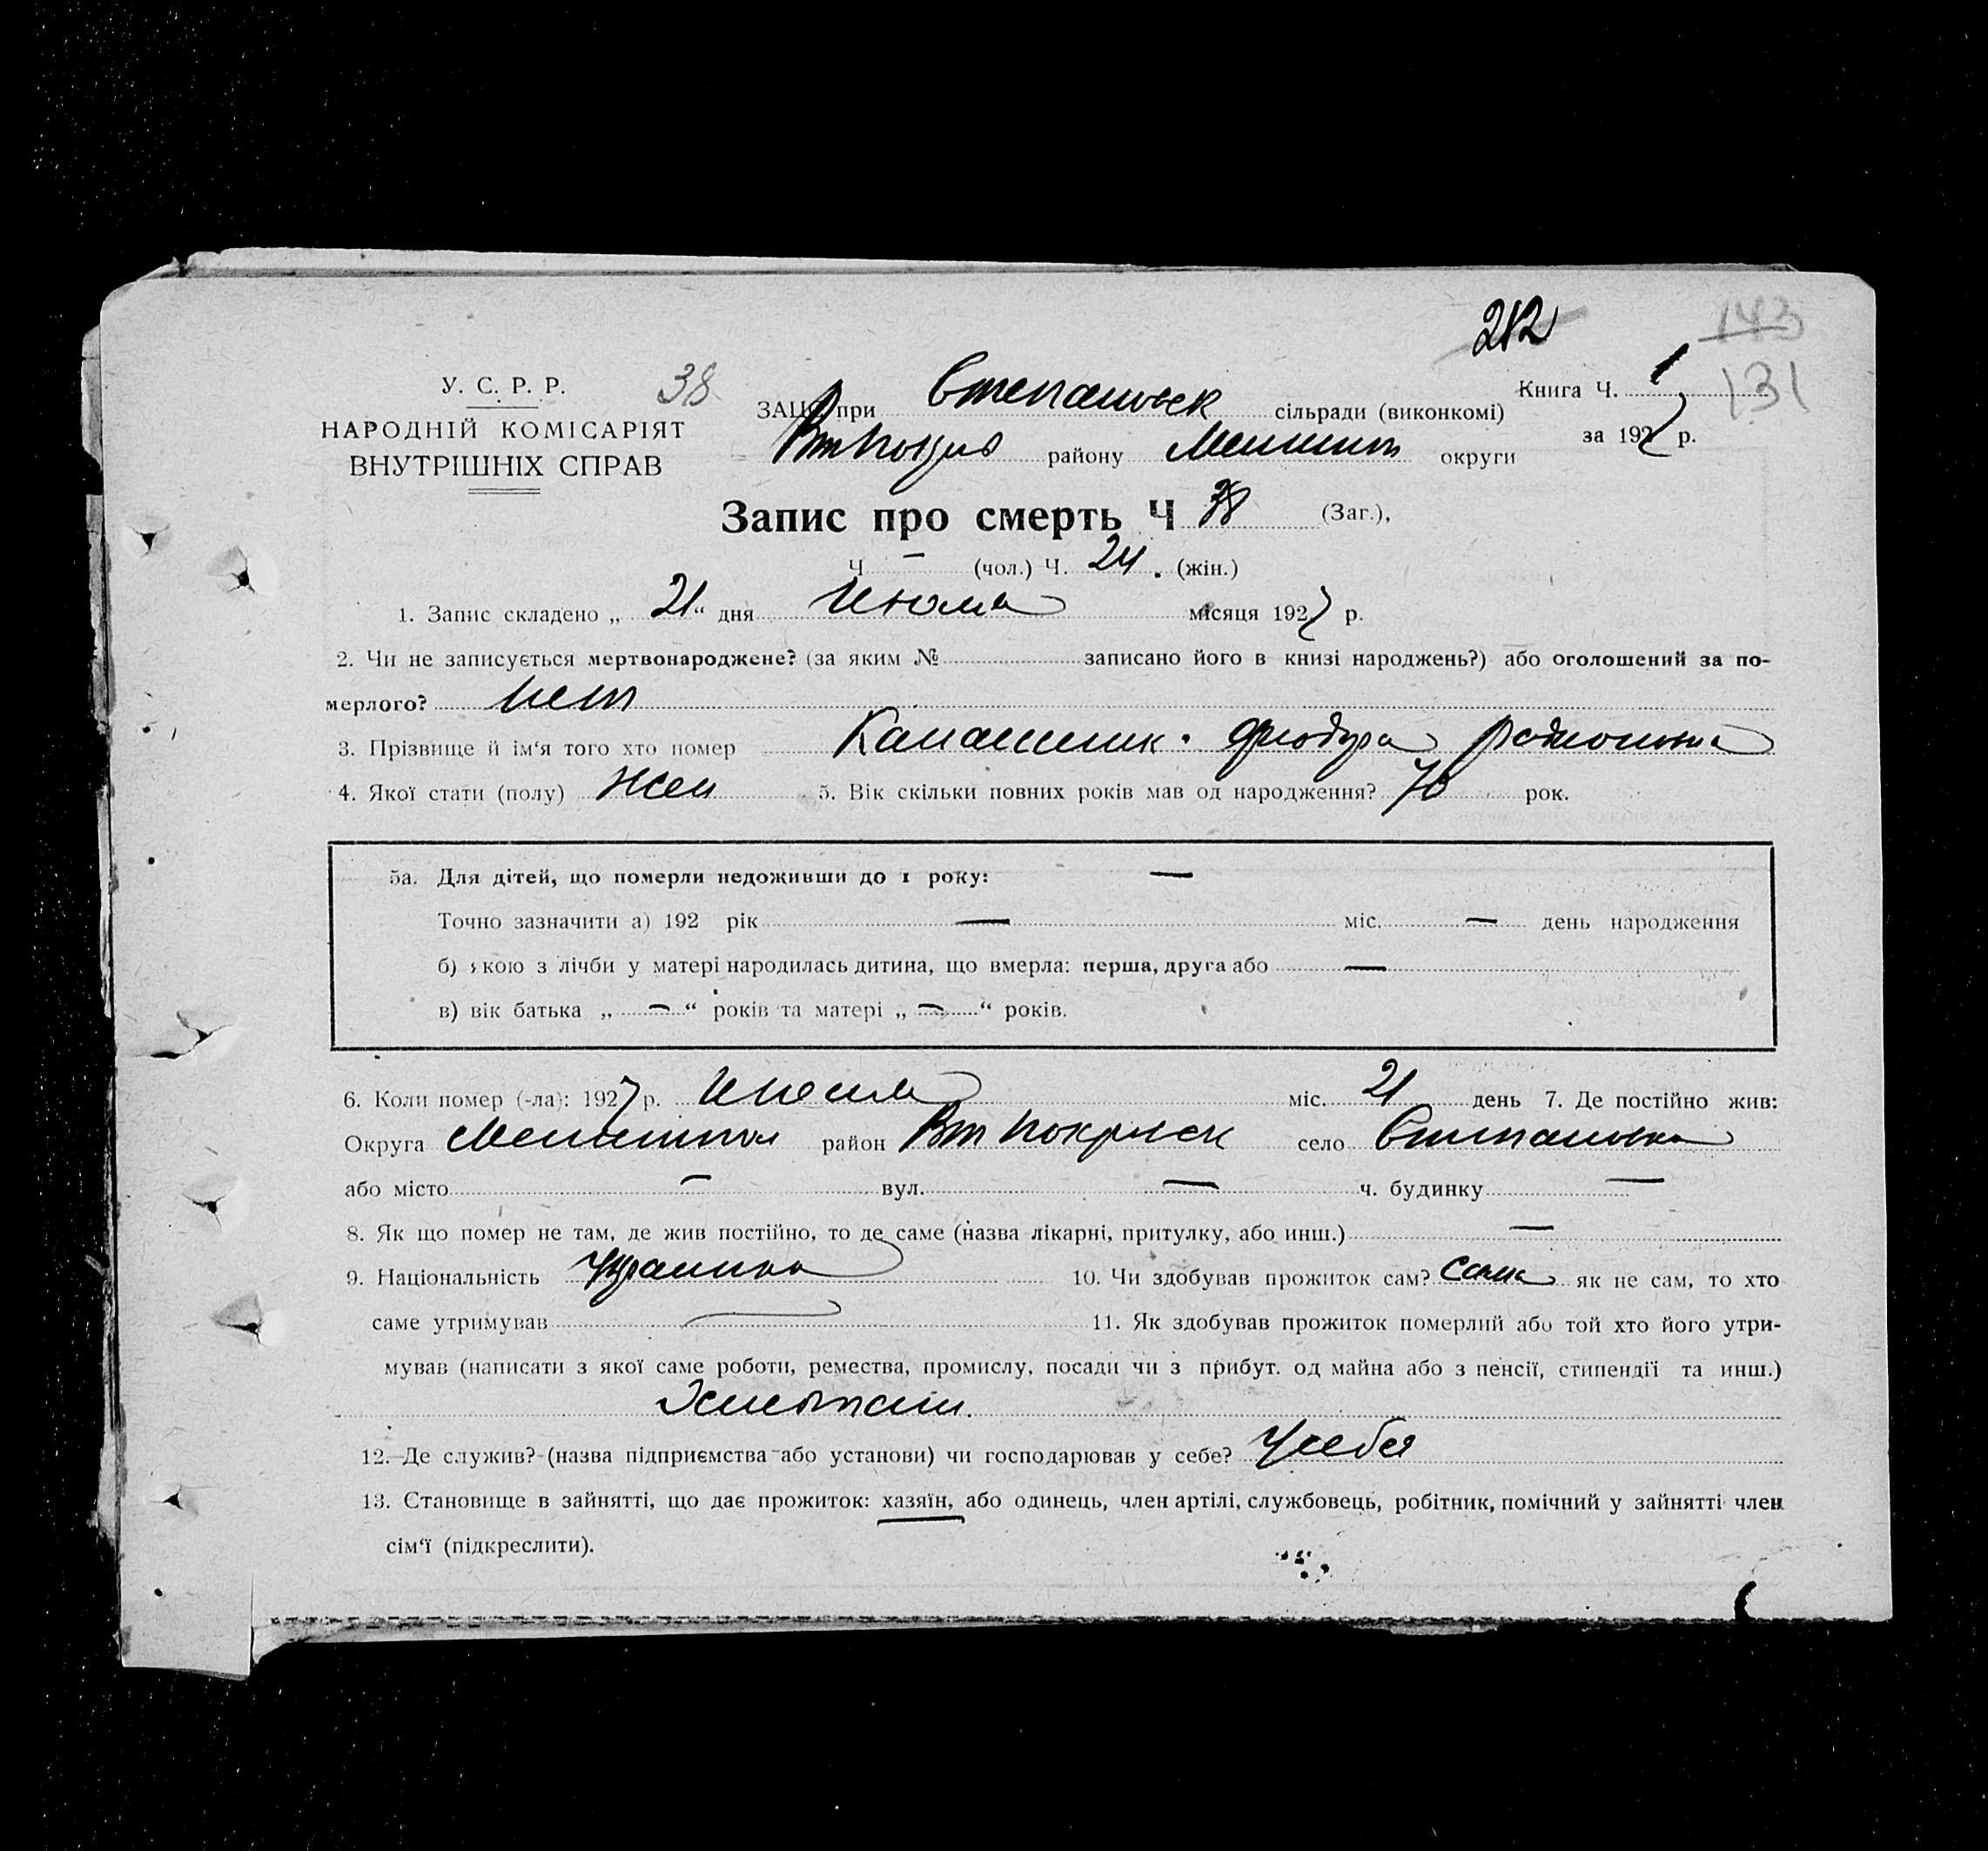 212
143
131
У. С. Р. Р.
38
НАРОДНІЙ КОМІСАРІЯТ
ВНУТРІШНІХ СПРАВ
ЗАЦС при Степановск сільради (виконкомі)
Книга Ч. 1
району Мелитоп округи
за 1927 р.
Запис про смерть Ч 38 (Заг.),
Ч — (чол.) Ч. 24. (жін.)
1. Запис складено „ 21 “ дня Июля місяця 1927 р.
2. Чи не записується мертвонароджене? (за яким № записано його в книзі народжень?) або оголошений за по-
мерлого? нет
3. Прізвище й ім‘я того хто помер
4. Якої стати (полу) Жен 5. Вік скільки повних років мав од народження? 70 рок.
5а. Для дітей, що померли недоживши до 1 року: —
Точно зазначити а) 192 рік — міс. — день народження
б) якою з лічби у матері народилась дитина, що вмерла: перша, друга або —
в) вік батька „ — “ років та матері „ — “ років.
6. Коли помер (-ла): 1927 р. Июля міс. 21 день 7. Де постійно жив:
Округа район Вт Покровск село Степановка
або місто — вул. — ч. будинку —
8. Як що помер не там, де жив постійно, то де саме (назва лікарні, притулку, або инш.) —
9. Національність Украинка 10. Чи здобував прожиток сам? сама як не сам, то хто
саме утримував — 11. Як здобував прожиток померлий або той хто його утри-
мував (написати з якої саме роботи, ремества, промислу, посади чи з прибут. од майна або з пенсії, стипендії та инш.)
12. Де служив? (назва підприємства або установи) чи господарював у себе? У себя
13. Становище в зайнятті, що дає прожиток: хазяїн, або одинець, член артілі, службовець, робітник, помічний у зайнятті член
сім‘ї (підкреслити).